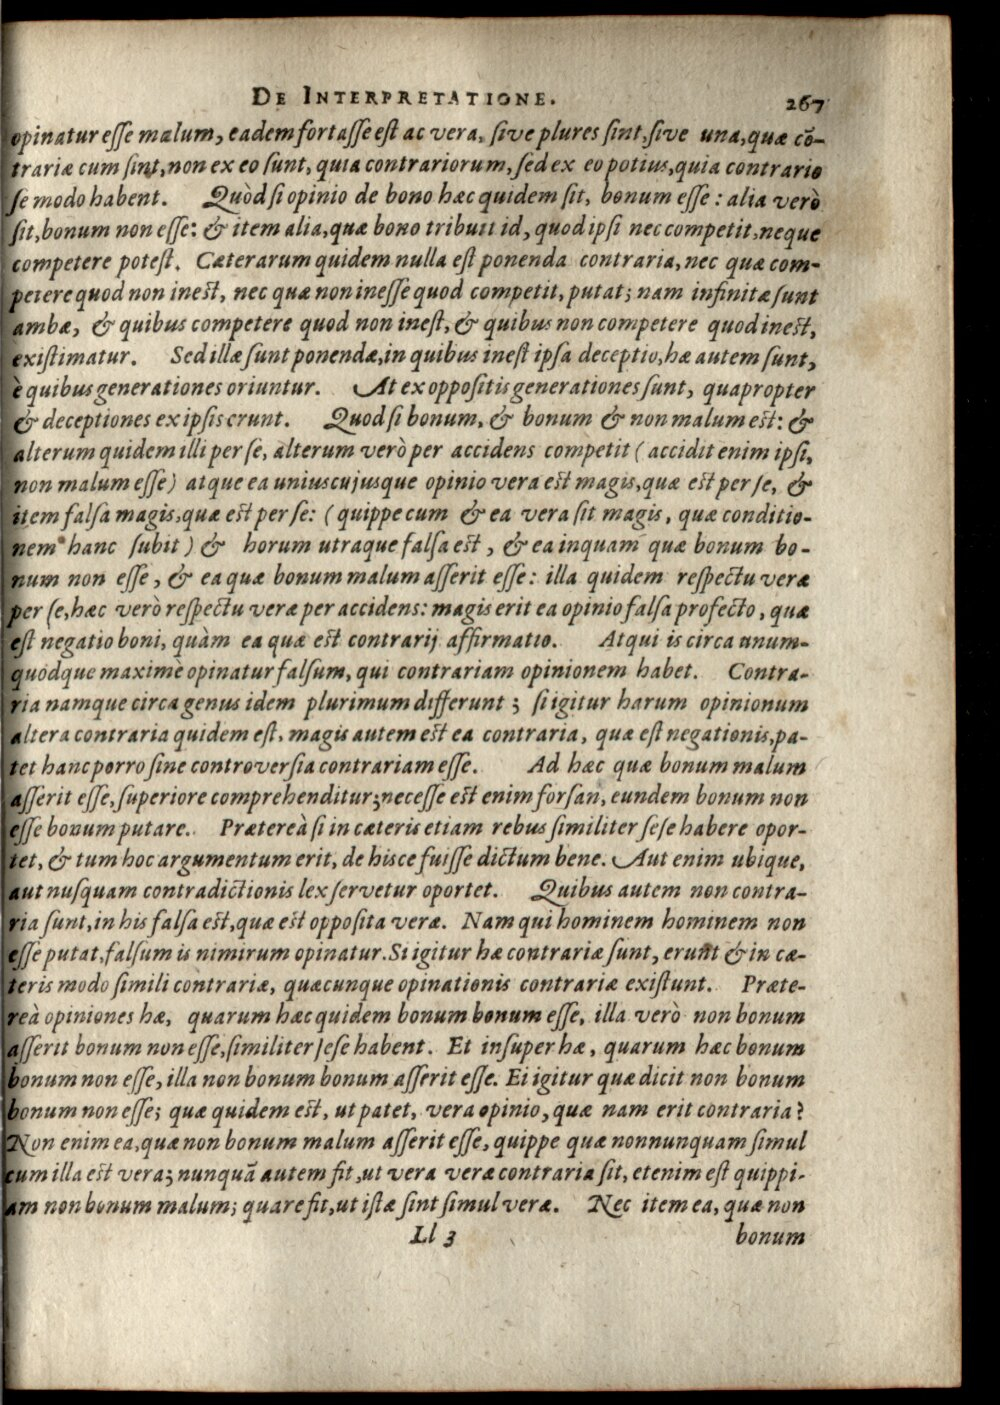 DE INTERPRETATIONE. 267
opinatur esse malum, eadem fortasse est ac vera, sive plures sint, sive una, quæ cõ-
trariæ cum sint, non ex eo sunt, quia contrariorum, sed ex eo potius, quia contrario
se modo habent. Quòd si opinio de bono hæc quidem sit, bonum esse: alia verò
sit, bonum non esse: & item alia, quæ bono tribuit id, quod ipsi nec competit, neque
competere potest. Cæterarum quidem nulla est ponenda contraria, nec quæ com-
petere quod non inest, nec quæ non inesse quod competit, putat; nam infinitæ sunt
ambæ, & quibus competere quod non inest, & quibus non competere quod inest,
existimatur. Sed illæ sunt ponendæ, in quibus inest ipsa deceptio, hæ autem sunt,
è quibus generationes oriuntur. At ex oppositis generationes sunt, quapropter
& deceptiones ex ipsis erunt. Quod si bonum, & bonum & non malum est: &
alterum quidem illi per se, alterum verò per accidens competit (accidit enim ipsi,
non malum esse) atque ea uniuscujusque opinio vera est magis, quæ est per se, &
item falsa magis, quæ est per se: (quippe cum & ea vera sit magis, quæ conditio-
nem hanc subit) & horum utraque falsa est, & ea inquam quæ bonum bo-
num non esse, & ea quæ bonum malum asserit esse: illa quidem respectu veræ
per se, hæc verò respectu veræ per accidens: magis erit ea opinio falsa profecto, quæ
est negatio boni, quàm ea quæ est contrarij affirmatio. Atqui is circa unum-
quodque maximè opinatur falsum, qui contrariam opinionem habet. Contra-
ria namque circa genus idem plurimum differunt; si igitur harum opinionum
altera contraria quidem est, magis autem est ea contraria, quæ est negationis, pa-
tet hanc porro sine controversia contrariam esse. Ad hæc quæ bonum malum
asserit esse, superiore comprehenditur; necesse est enim forsan, eundem bonum non
esse bonum putare. Prætereà si in cæteris etiam rebus similiter sese habere opor-
tet, & tum hoc argumentum erit, de hisce fuisse dictum bene. Aut enim ubique,
aut nusquam contradictionis lex servetur oportet. Quibus autem non contra-
ria sunt, in his falsa est, quæ est opposita veræ. Nam qui hominem hominem non
esse putat, falsum is nimirum opinatur. Si igitur hæ contrariæ sunt, erunt & in cæ-
teris modo simili contrariæ, quæcunque opinationis contrariæ existunt. Præte-
reà opiniones hæ, quarum hæc quidem bonum bonum esse, illa verò non bonum
asserit bonum non esse, similiter sese habent. Et insuper hæ, quarum hæc bonum
bonum non esse, illa non bonum bonum asserit esse. Ei igitur quæ dicit non bonum
bonum non esse; quæ quidem est, ut patet, vera opinio, quæ nam erit contraria?
Non enim ea, quæ non bonum malum asserit esse, quippe quæ nonnunquam simul
cum illa est vera; nunquã autem fit, ut vera veræ contraria sit, etenim est quippi-
am non bonum malum; quare fit, ut istæ sint simul veræ. Nec item ea, quæ non
Ll 3 bonum